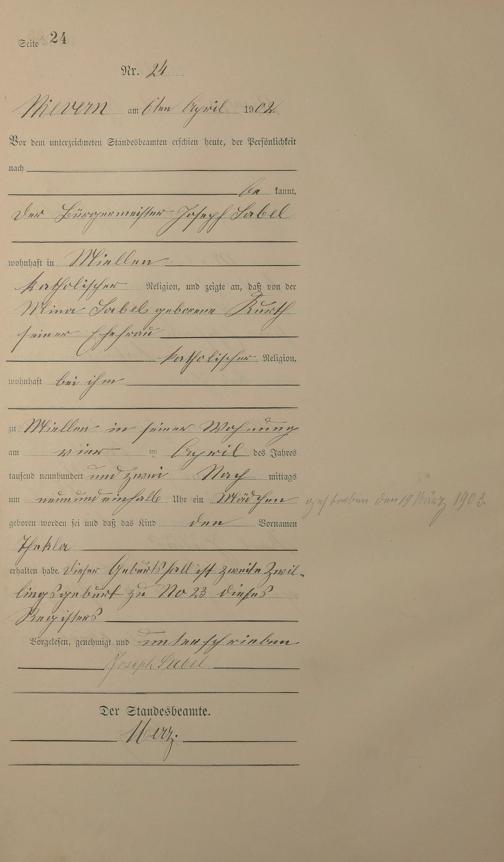 Seite 24
Nr. 24
Nievern am 6ten April 1902
Vor dem unterzeichneten Standesbeamten erschien heute, der Persönlichkeit
nach
be kannt,
der Bürgermeister Joseph Sabel
wohnhaft in Miellen
katholischer Religion, und zeigte an, daß von der
Mina Sabel geborene Kurth
seiner Ehefrau
katholischer Religion,
wohnhaft bei ihm
zu Miellen in seiner Wohnung
am vier im April des Jahres
tausend neunhundert und zwei Nach mittags
um neun und einhalb Uhr ein Mädchen
geboren worden sei und daß das Kind den Vornamen
Thekla
erhalten habe. Dieser Geburtsfall ist zweite Zwil-
lingsgeburt zu No 23 dieses
Registers
Vorgelesen, genehmigt und unterschrieben
Joseph Sabel
Der Standesbeamte.
Merz.
gestorben den 19 März 1903